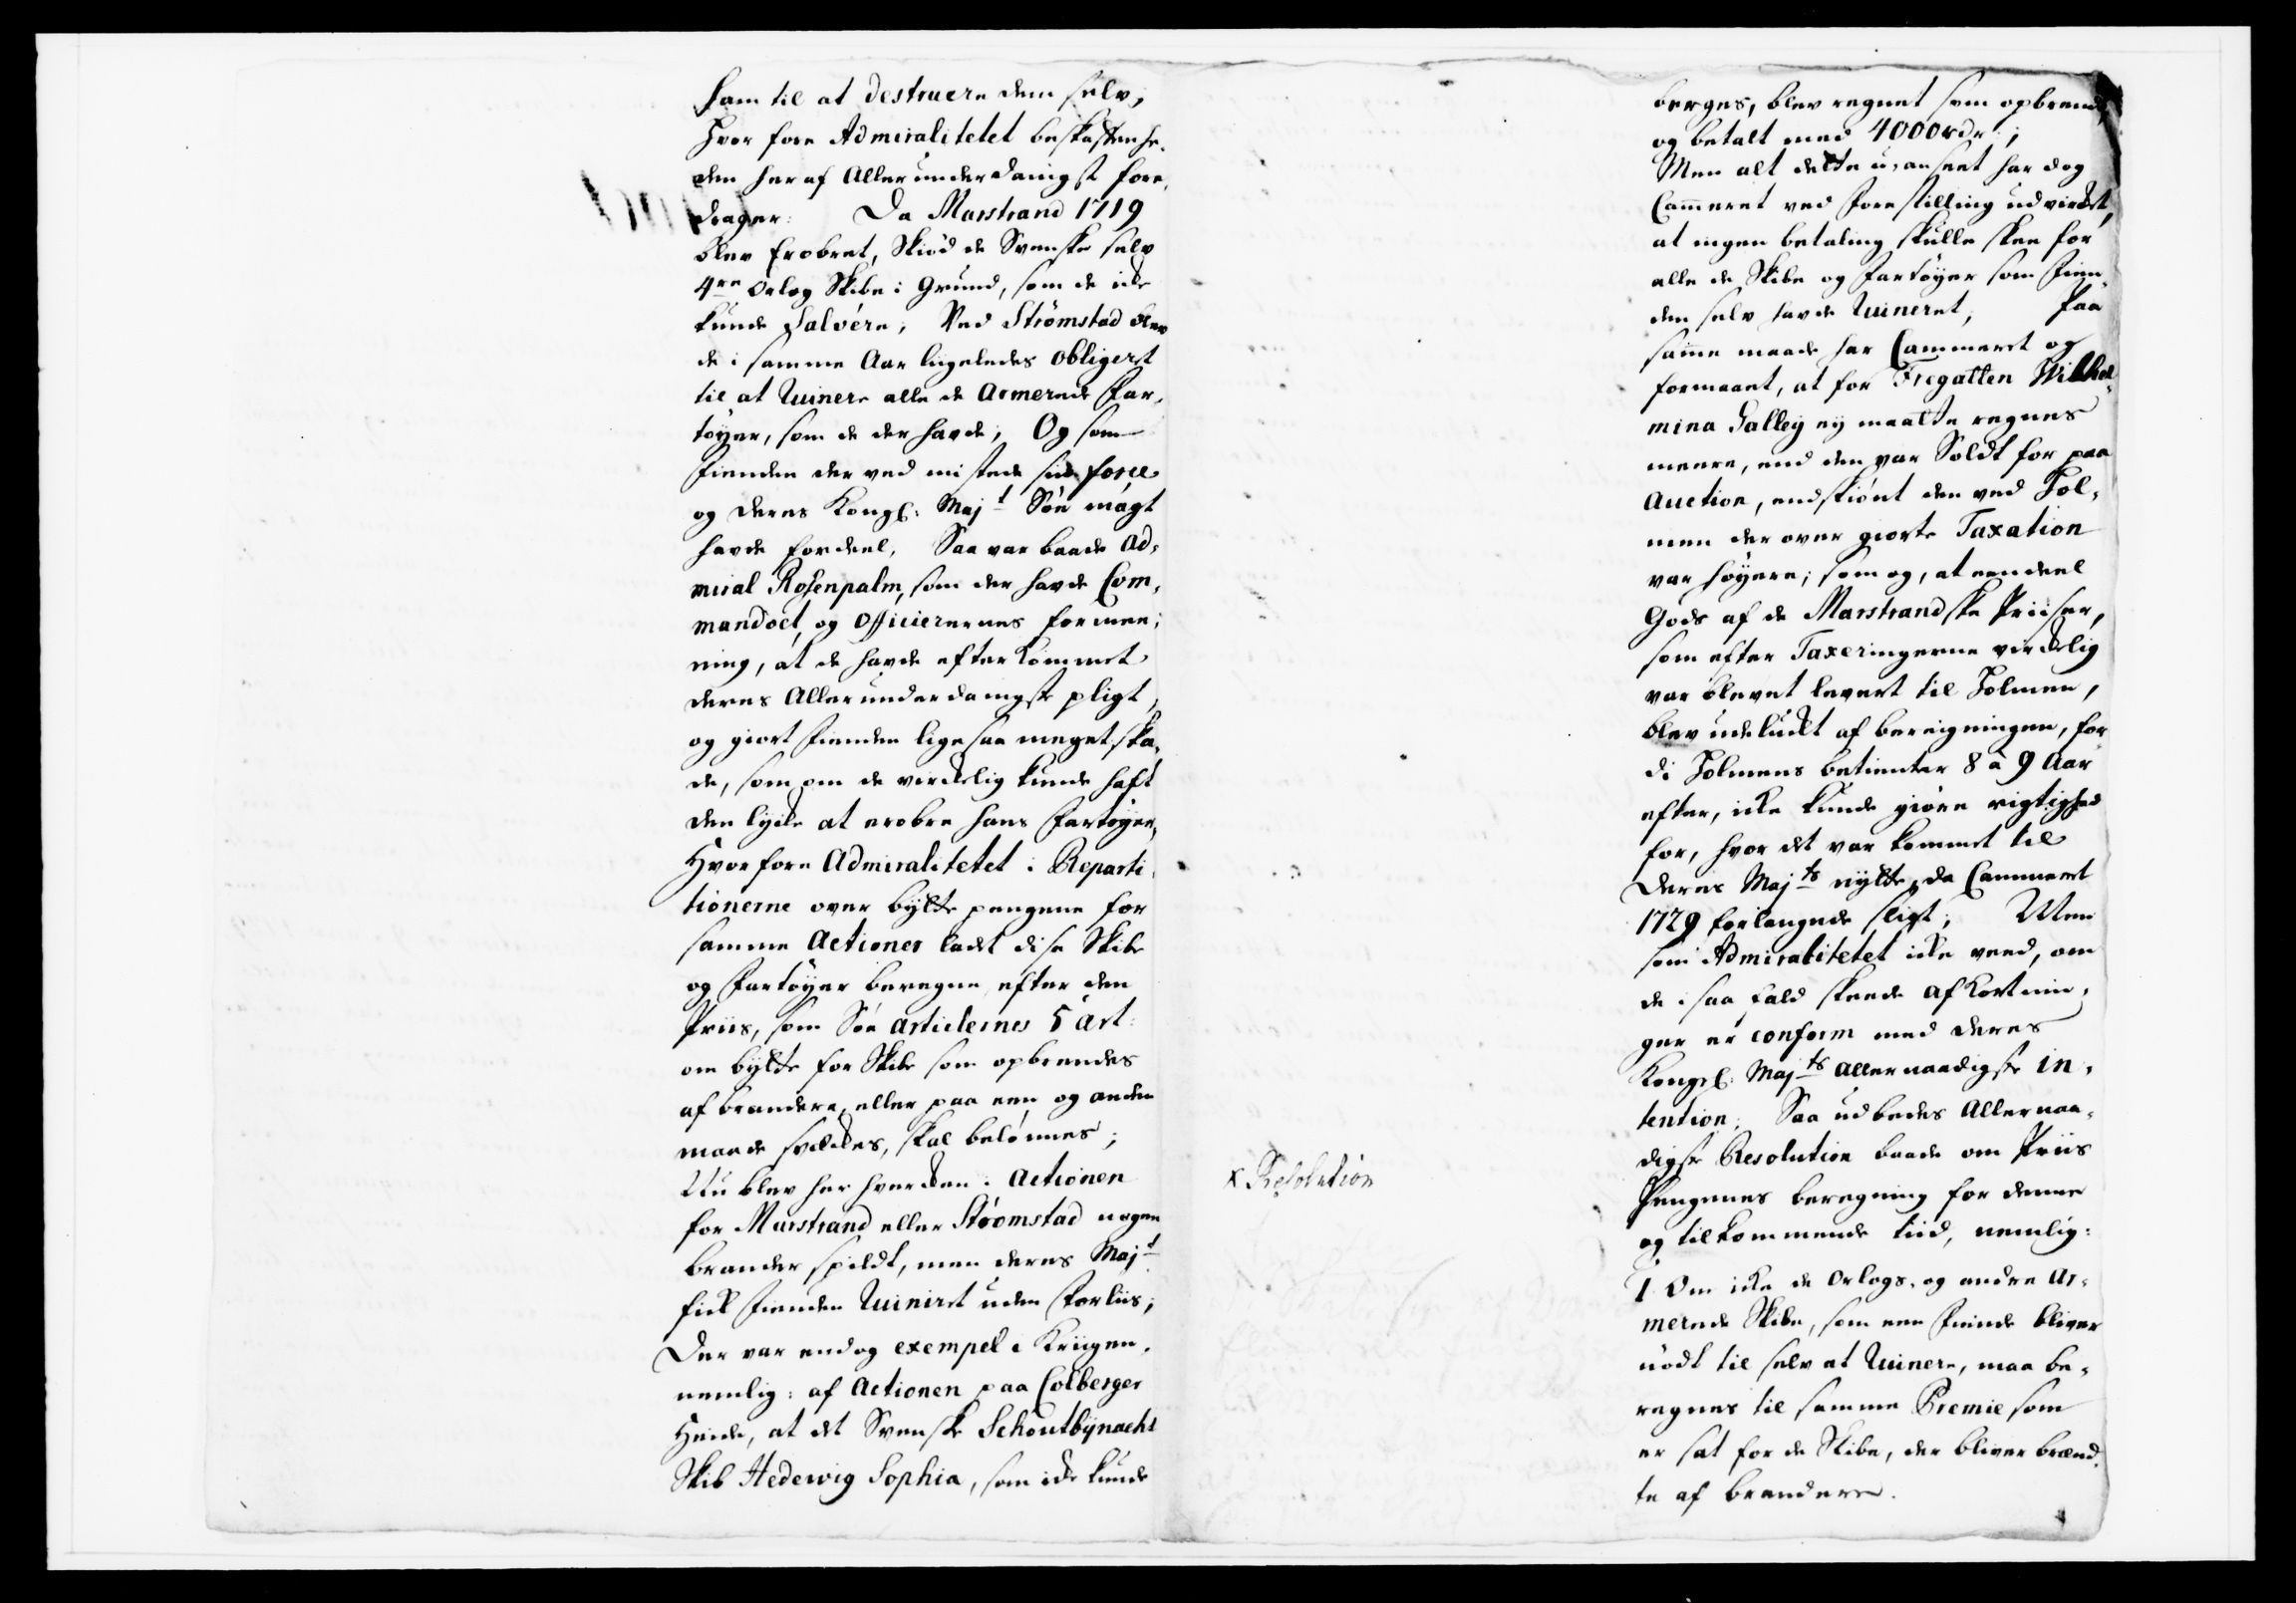 ham til at destruere dem selv;
Hvor fore Admiralitetet beskaffenhe-
den her af Allerunderdanigst fore-
drager: Da Marstrand 1719
blev Erobret, Skiød de Svenske selv
4re Orlog Skibe i Grund, som de icke
kunde Salvére; Ved Strömstad blev
de i samme Aar ligeledes obligeret
til at Ruinere alle de Armerede Far-
tøyer, som de der havde; Og som
Fienden der ved mistede sin force
og deres Kongl: Majt Søe magt
havde fordeel, Saa var baade Ad-
miral Rosenpalm, som der havde Com-
mandoet, og Officierernes formee-
ning, at de havde efterkommet
deres Allerunderdanigste pligt,
og giort Fienden lige saa meget ska-
de, som om de virkelig kunde haft
den lycke at erobre hans Fartøyer,
Hvor fore Admiralitetet i Reparti-
tionerne over bytte pengene for
samme Actioner ladt disse Skibe
og Fartøyer beregne, efter den
Priis, som Søe articlernes 5 Art:
om bytte for Skibe som opbrendes
af brandere, eller paa een og anden
maade spildes, skal belønnes;
Nu blev her hverken i Actionen
for Marstrand eller Strömstad nogen
brander spildt, men deres Majt
fick Fienden Ruineret uden Forliis;
Der var endog exempel i Kriigen,
nemlig: af Actionen paa Colberger
Heide, at det Svenske Schoutbynacht
Skib Hedewig Sophia, som icke kunde
berges, blev regnet som opbrendt
og betalt med 4000 rdr:;
Men alt dette u-anseet har dog
Cammeret ved Forestilling udvircket,
at ingen betaling skulle skee for
alle de Skibe og Fartøyer som Fien-
den selv havde Ruineret; Paa
samme maade har Cammeret og
formaaet, at for Fregatten Wilhel-
mina Galley ey maatte regnes
meere, end den var Soldt for paa
Auction, endskiønt den ved Hol-
men der over giorte Taxation
var høyere; som og, at eendeel
Gods af de Marstrandske Priiser,
som efter Taxeringerne virckelig
var blevet levert til Holmen,
blev udeluckt af bereigningen, for-
di Holmens betienter 8 à 9 Aar
efter, icke kunde giøre rigtighed
for, hvor det var kommet til
Deres Majts nytte, da Cammeret
1729 forlangede sligt; Men
som Admiralitetet icke veed, om
de i saa fald skeede afkortnin-
ger er conform med deres
Kongl: Majts allernaadigste in-
tention; Saa udbedes Allernaa-
digste Resolution baade om Priis
Pengenes beregning for denne
og tilkommende tiid, nemlig:
x Resolution
1 Om icke de Orlogs- og andre Ar-
merede Skibe, som een Fiende bliver
nødt til selv at Ruinere, maa be-
regnes til samme Premie som
er sat for de Skibe, der bliver brænd-
te af brandere.